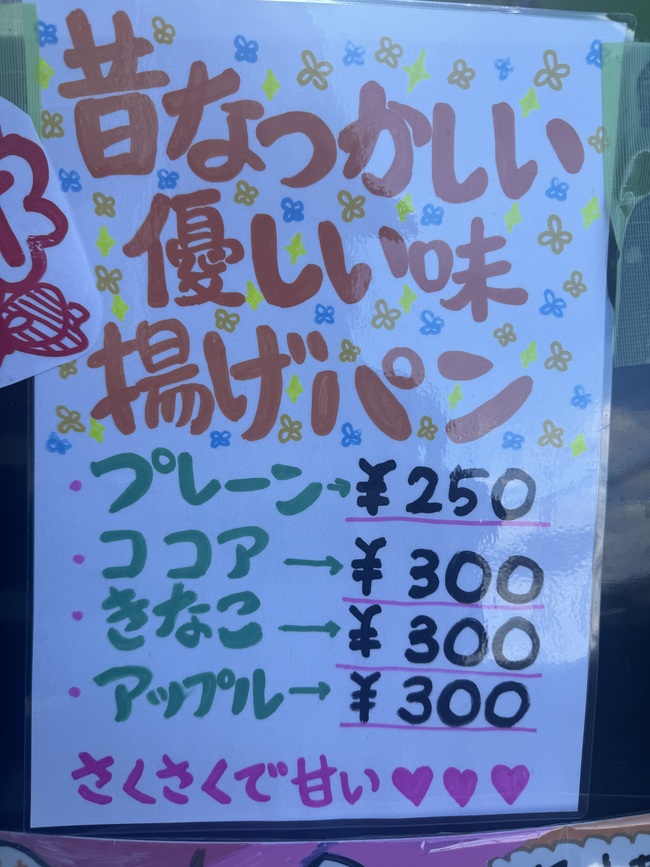 昔なつかしい
優しい味
揚げパン
・プレーン→¥250
・ココア→¥300
・きなこ→¥300
・アップル→¥300
さくさくで甘い♥♥♥